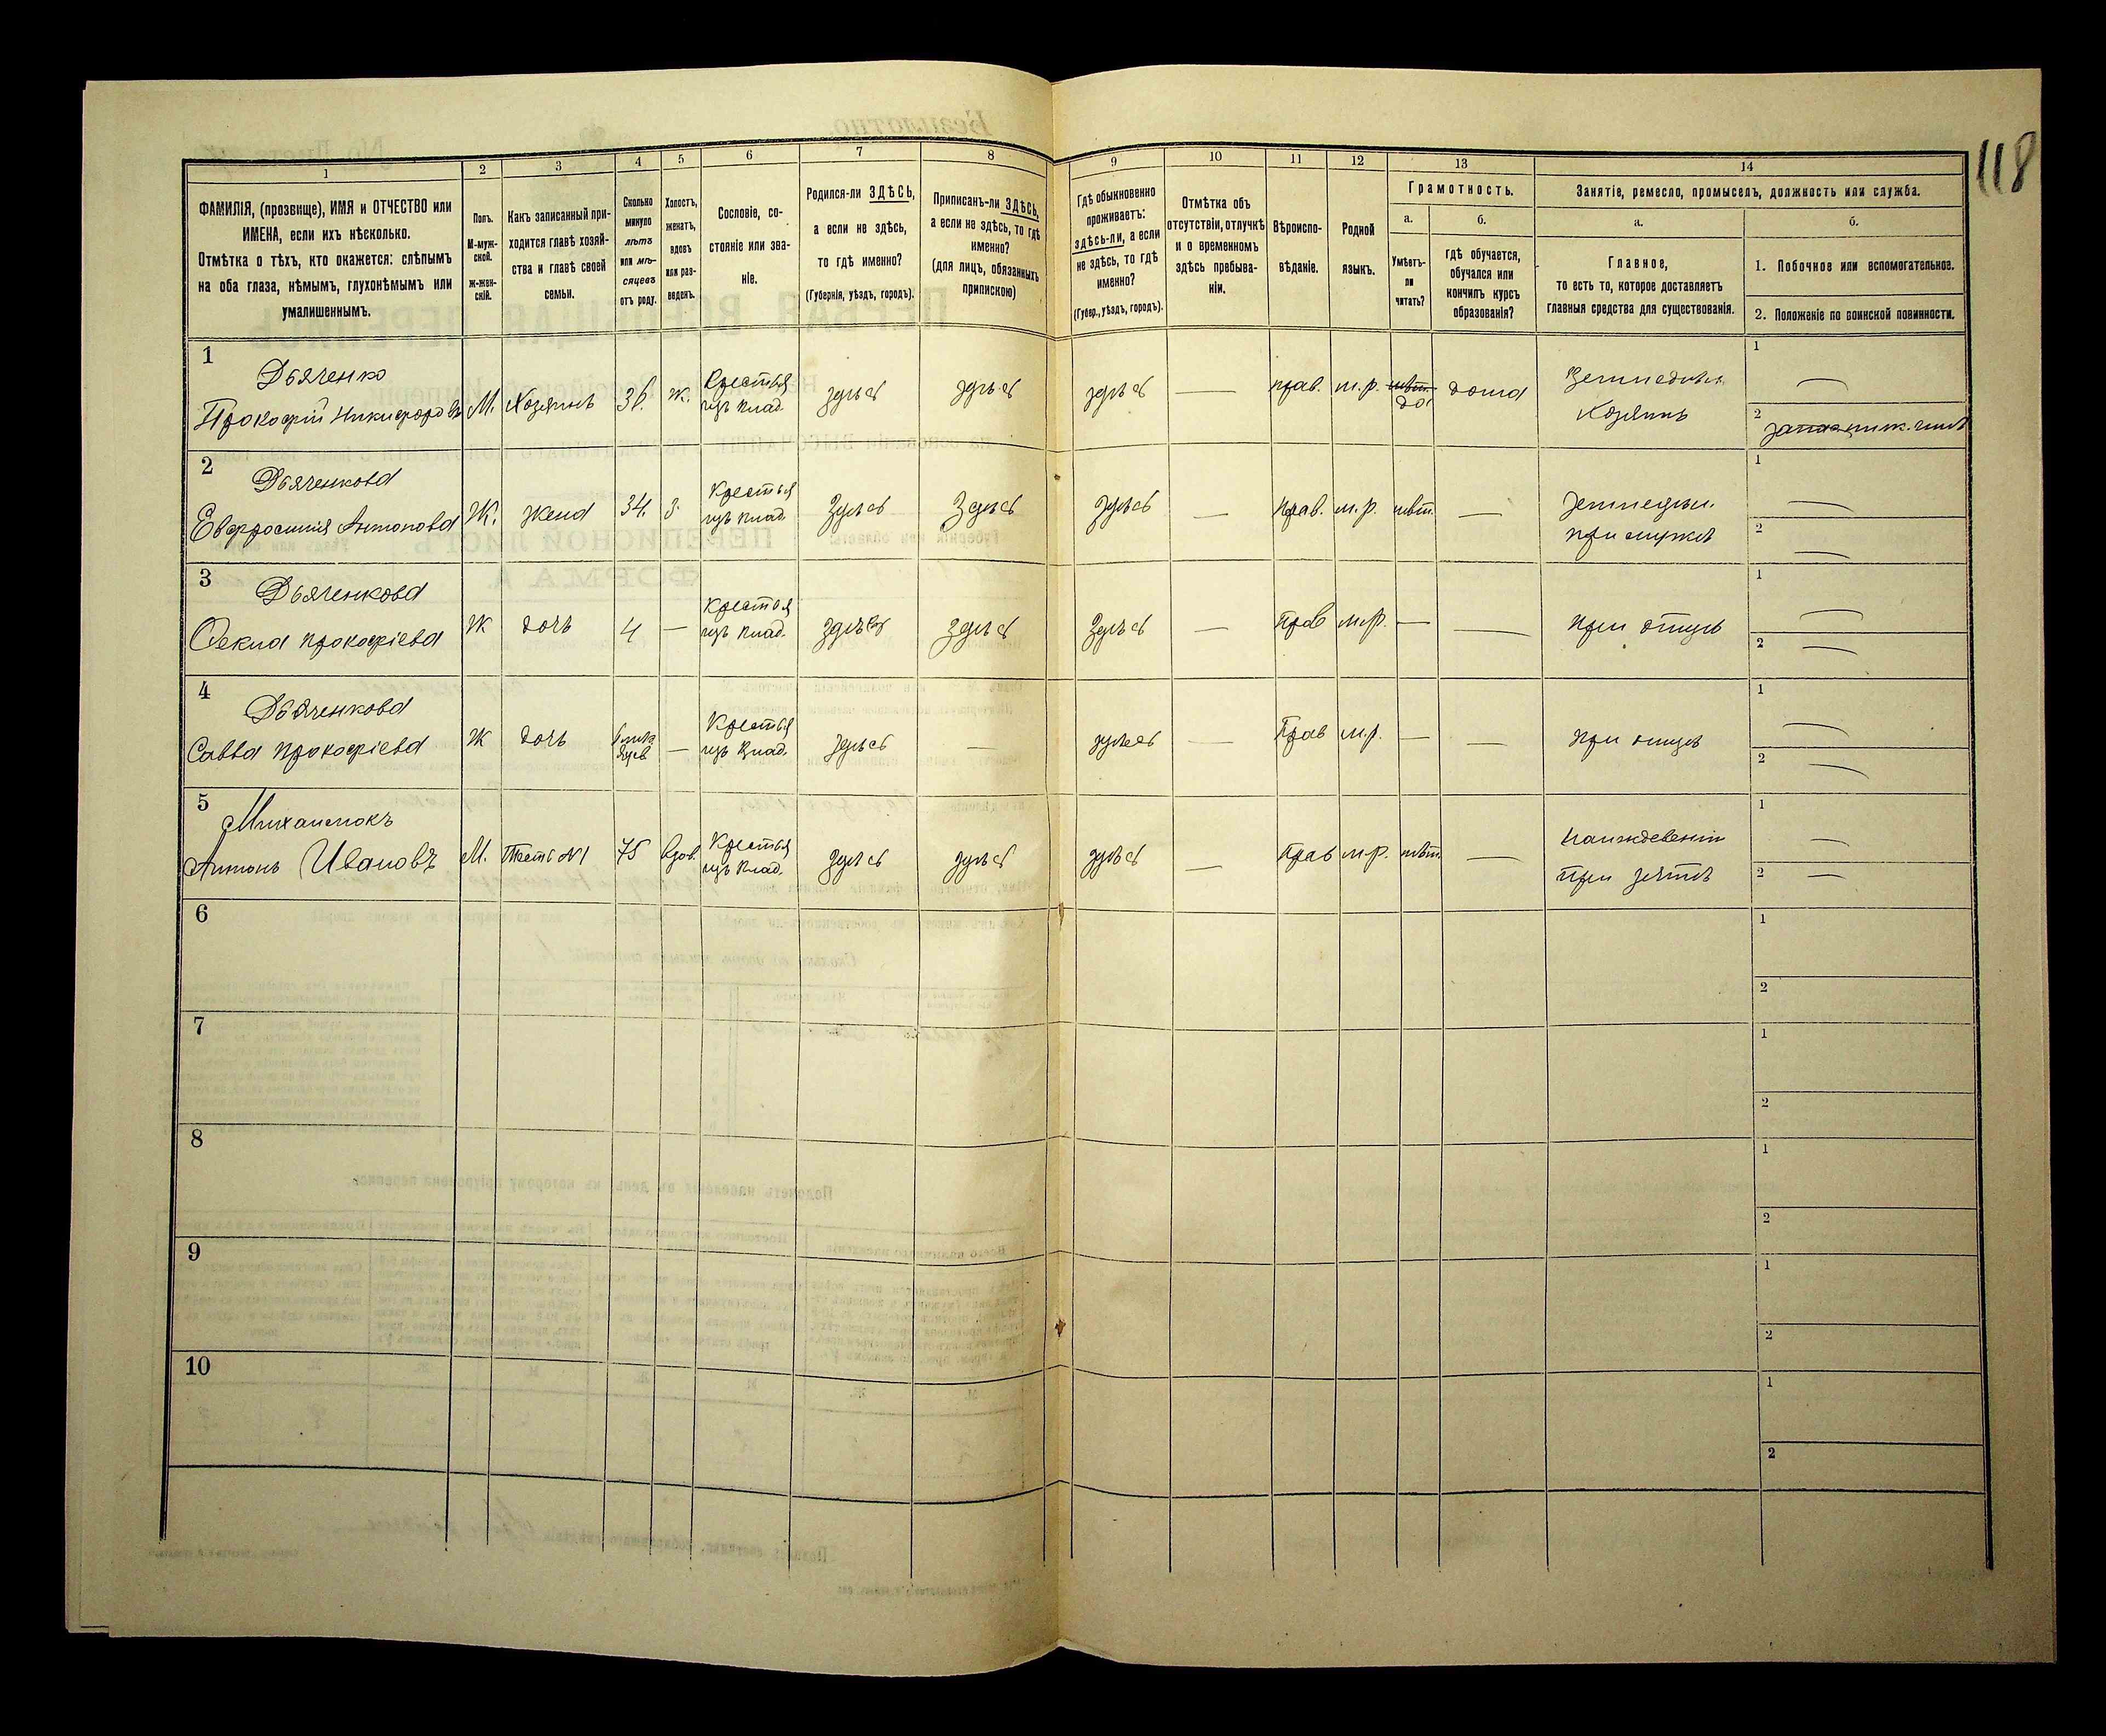 118
1 2 3 4 5 6 7 8 9 10 11 12 13 14
ФАМИЛІЯ, (прозвище), ИМЯ и ОТЧЕСТВО или
ИМЕНА, если ихъ нѣсколько.
Отмѣтка о тѣхъ, кто окажется: слѣпымъ
на оба глаза, нѣмымъ, глухонѣмымъ или
умалишеннымъ.
Полъ.
М-муж-
ской.
Ж-жен-
скій.
Какъ записанный при-
ходится главѣ хозяй-
ства и главѣ своей
семьи.
Сколько
минуло
лѣтъ
или мѣ-
сяцевъ
отъ роду.
Холостъ,
женатъ,
вдовъ
или раз-
веденъ.
Сословіе, со-
стояніе или зва-
ніе.
Родился-ли ЗДѢСЬ,
а если не здѣсь,
то гдѣ именно?
(Губернія, уѣздъ, городъ).
Приписанъ-ли ЗДѢСЬ,
а если не здѣсь, то гдѣ
именно?
(для лицъ, обязанныхъ
припискою)
Гдѣ обыкновенно
проживаетъ:
здѣсь-ли, а если
не здѣсь, то гдѣ
именно?
(Губер., уѣздъ, городъ).
Отмѣтка объ
отсутствіи, отлучкѣ
и о временномъ
здѣсь пребыва-
ніи.
Вѣроиспо-
вѣданіе.
Родной
языкъ.
Грамотность.
а.
Умѣетъ-
ли
читать?
б.
гдѣ обучается,
обучался или
кончилъ курсъ
образованія?
Занятіе, ремесло, промыселъ, должность или служба.
а.
Главное,
то есть то, которое доставляетъ
главныя средства для существованія.
б.
1. Побочное или вспомогательное.
2. Положеніе по воинской повинности.
1
Дьяченко
Прокофій Никифоровъ
М. Хозяинъ 36. ж.
Крестья
изъ влад.
здѣсь здѣсь здѣсь — прав. м.р.
нѣт.
да.
дома
Земледѣл.
Хозяинъ
1 —
2 запас. ниж. чинъ
2
Дьяченкова
Евфросинія Антонова
Ж. жена 34. з.
Крестья
изъ влад.
Здѣсь Здѣсь здѣсь — прав. м.р. нѣт. —
Земледѣл.
при мужѣ
1 —
2 —
3
Дьяченкова
Фекла Прокофіева
Ж дочь 4 —
Крестья
изъ влад.
здѣсь здѣсь здѣсь — Прав м.р. — —
при отцѣ
1 —
2 —
4
Дьяченкова
Савва Прокофіева
Ж дочь —
Крестья
изъ влад.
здѣсь — здѣсь — Прав м.р. — —
при отцѣ
1 —
2 —
5
Антонъ Ивановъ
М. Тесть №1 75 вдов.
Крестья
изъ влад.
здѣсь здѣсь здѣсь — Прав м.р. нѣт. —
при зятѣ
1 —
2 —
6
1
2
7
1
2
8
1
2
9
1
2
10
1
2